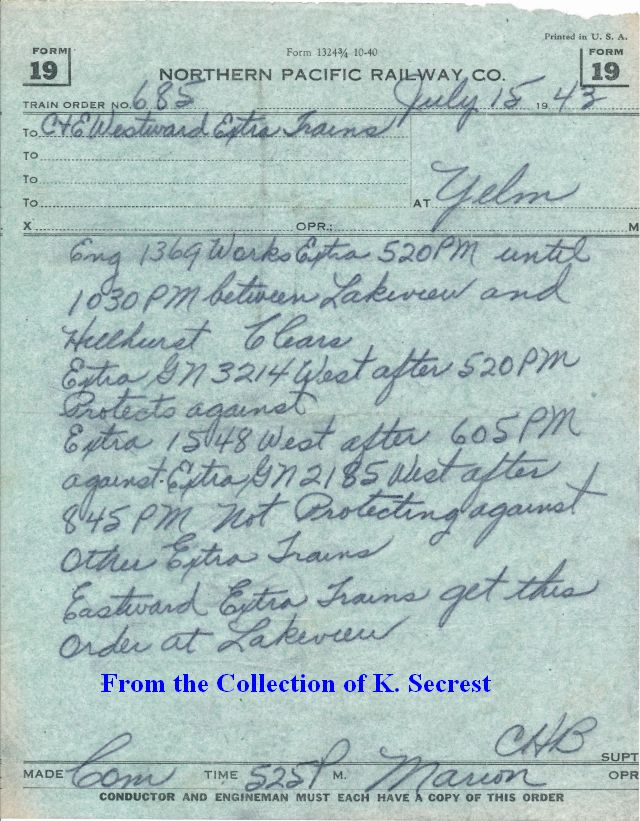 Printed in U. S. A.
FORM 19
Form 1324¾ 10-40
FORM 19
NORTHERN PACIFIC RAILWAY CO.
TRAIN ORDER NO. 685 July 15 1943
To C+E Westward Extra Trains
To
To
To AT Yelm
X OPR.: M
Eng 1369 Works Extra 520 PM until
1030 PM between Lakeview and
Hillhurst Clears
Extra GN 3214 West after 520 PM
Protects against
Extra 1548 West after 605 PM
against Extra GN 2185 West after
845 PM Not Protecting against
Other Extra Trains
Eastward Extra Trains get this
Order at Lakeview
From the Collection of K. Secrest
CHB SUPT
MADE Com TIME 525 P M. Marion OPR
CONDUCTOR AND ENGINEMAN MUST EACH HAVE A COPY OF THIS ORDER